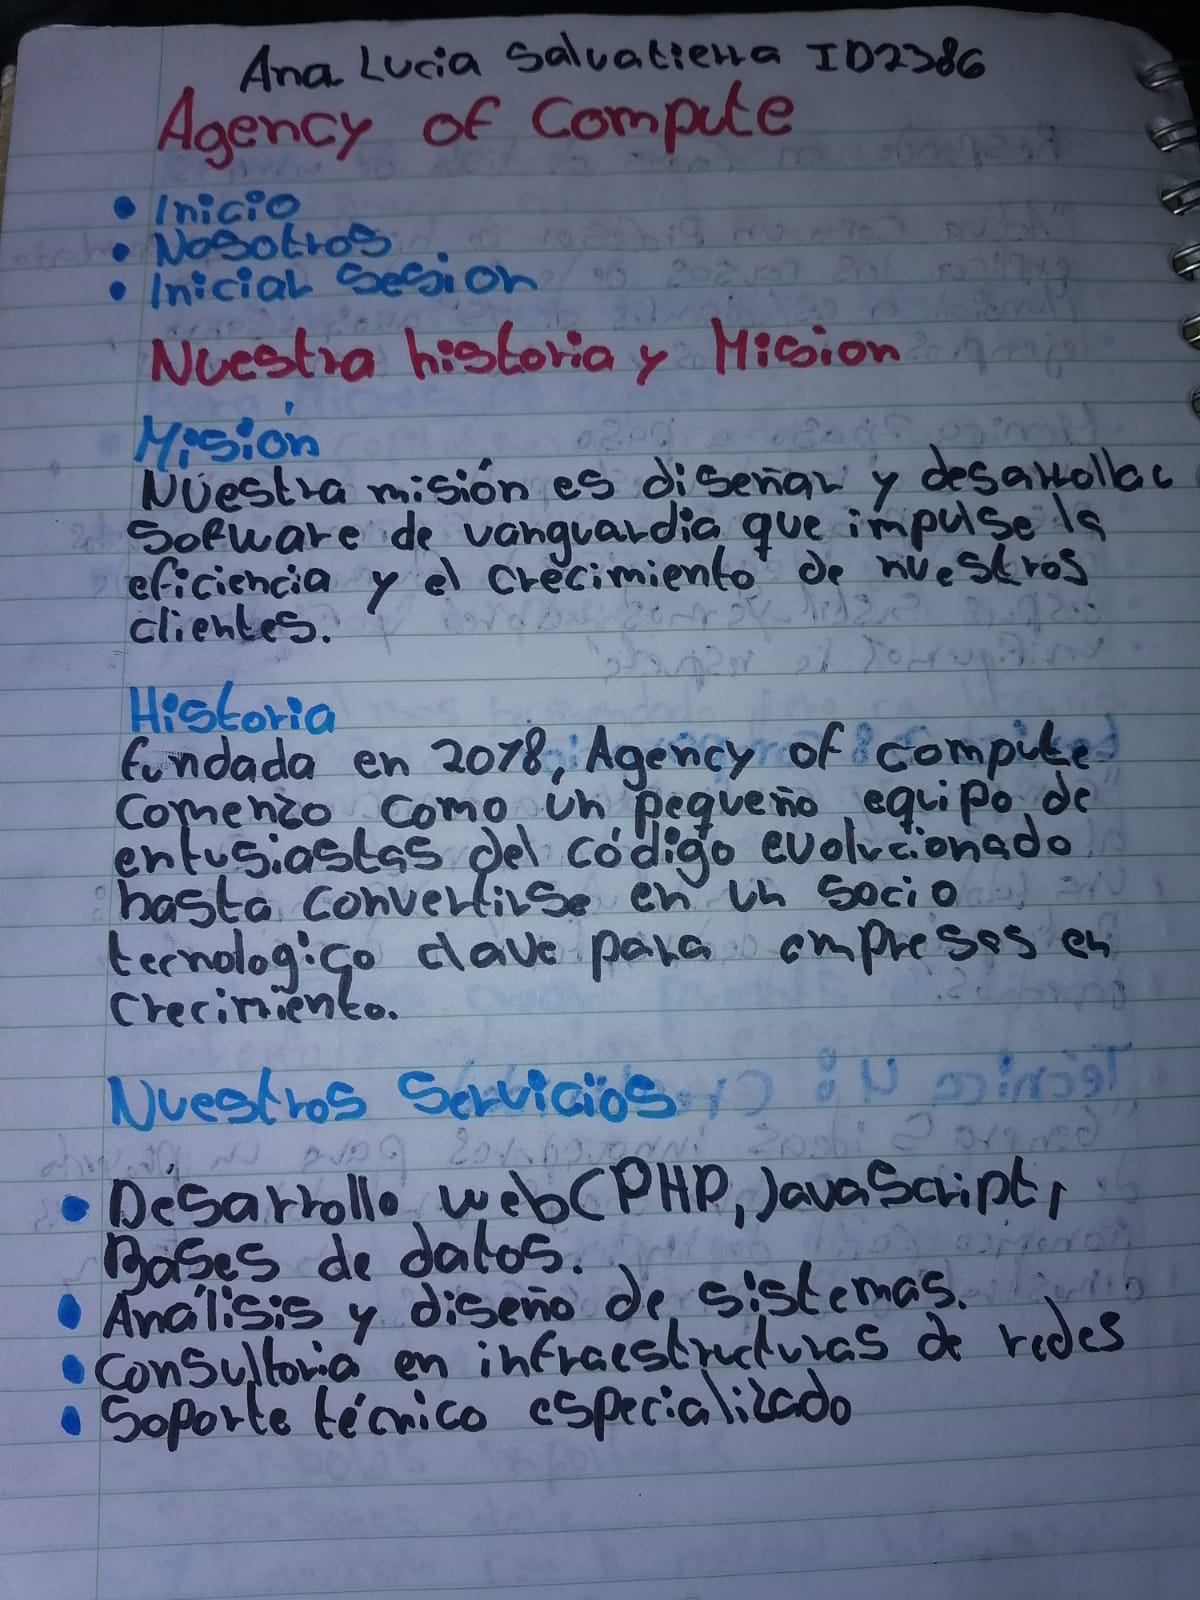 Ana Lucia Salvatierra ID2386
Agency of Compute
• Inicio
• Nosotros
• Iniciar Sesion
Nuestra historia y Mision
Misión
Nuestra misión es diseñar y desarrollar
Software de vanguardia que impulse la
eficiencia y el crecimiento de nuestros
clientes.
Historia
fundada en 2018, Agency of compute
comenzo como un pequeño equipo de
entusiastas del código evolucionado
hasta convertirse en un socio
tecnologico clave para empresas en
crecimiento.
Nuestros Servicios
• Desarrollo web (PHP, JavaScript,
Bases de datos.
• Análisis y diseño de sistemas.
• Consultoria en infraestructuras de redes
• Soporte técnico especializado